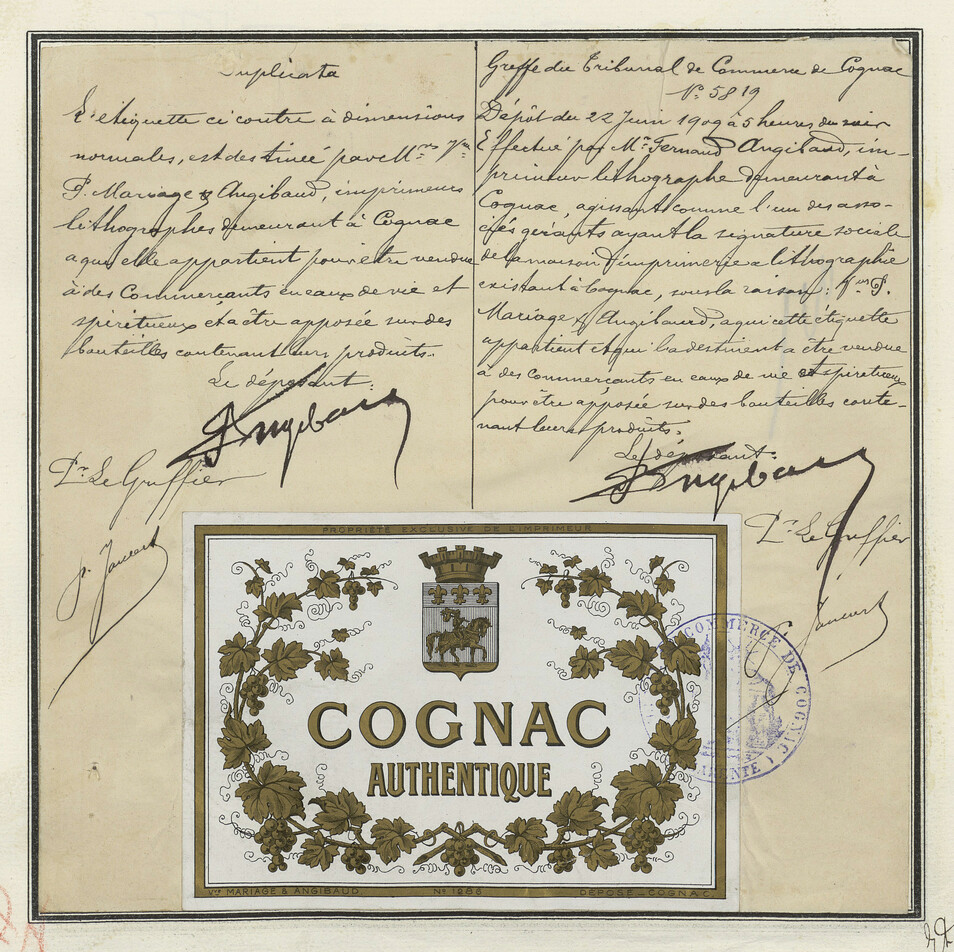 Duplicata
L'étiquette ci contre à dimensions
normales, est destinée par Mrs Vve
F. Mariage & Angibaud, imprimeurs
lithographes demeurant à Cognac
a qui elle appartient pour être vendue
à des Commerçants en eaux de vie et
spiritueux et a être apposée sur des
bouteilles contenant leurs produits.
Le déposant:
Angibaud
Pr Le Greffier
Greffe du Tribunal de Commerce de Cognac
No 5819
Dépôt du 22 Juin 1909 à 5 heures du soir
Effectué par Mr Fernand Angibaud, im-
primeur lithographe demeurant à
Cognac, agissant comme l'un des asso-
ciés gérants ayant la signature sociale
de la maison d'imprimerie & lithographie
existant à Cognac, sous la raison: Vve F.
Mariage & Angibaud, a qui cette étiquette
appartient et qui la destinent a être vendue
à des commerçants en eaux de vie et spiritueux
pour être apposée sur des bouteilles conte-
nant leurs produits.
Le déposant:
Angibaud
Pr Le Greffier
PROPRIÉTÉ EXCLUSIVE DE L'IMPRIMEUR
COGNAC
AUTHENTIQUE
Vve MARIAGE & ANGIBAUD No 1286 DÉPOSÉ_COGNAC
COMMERCE DE COGNAC